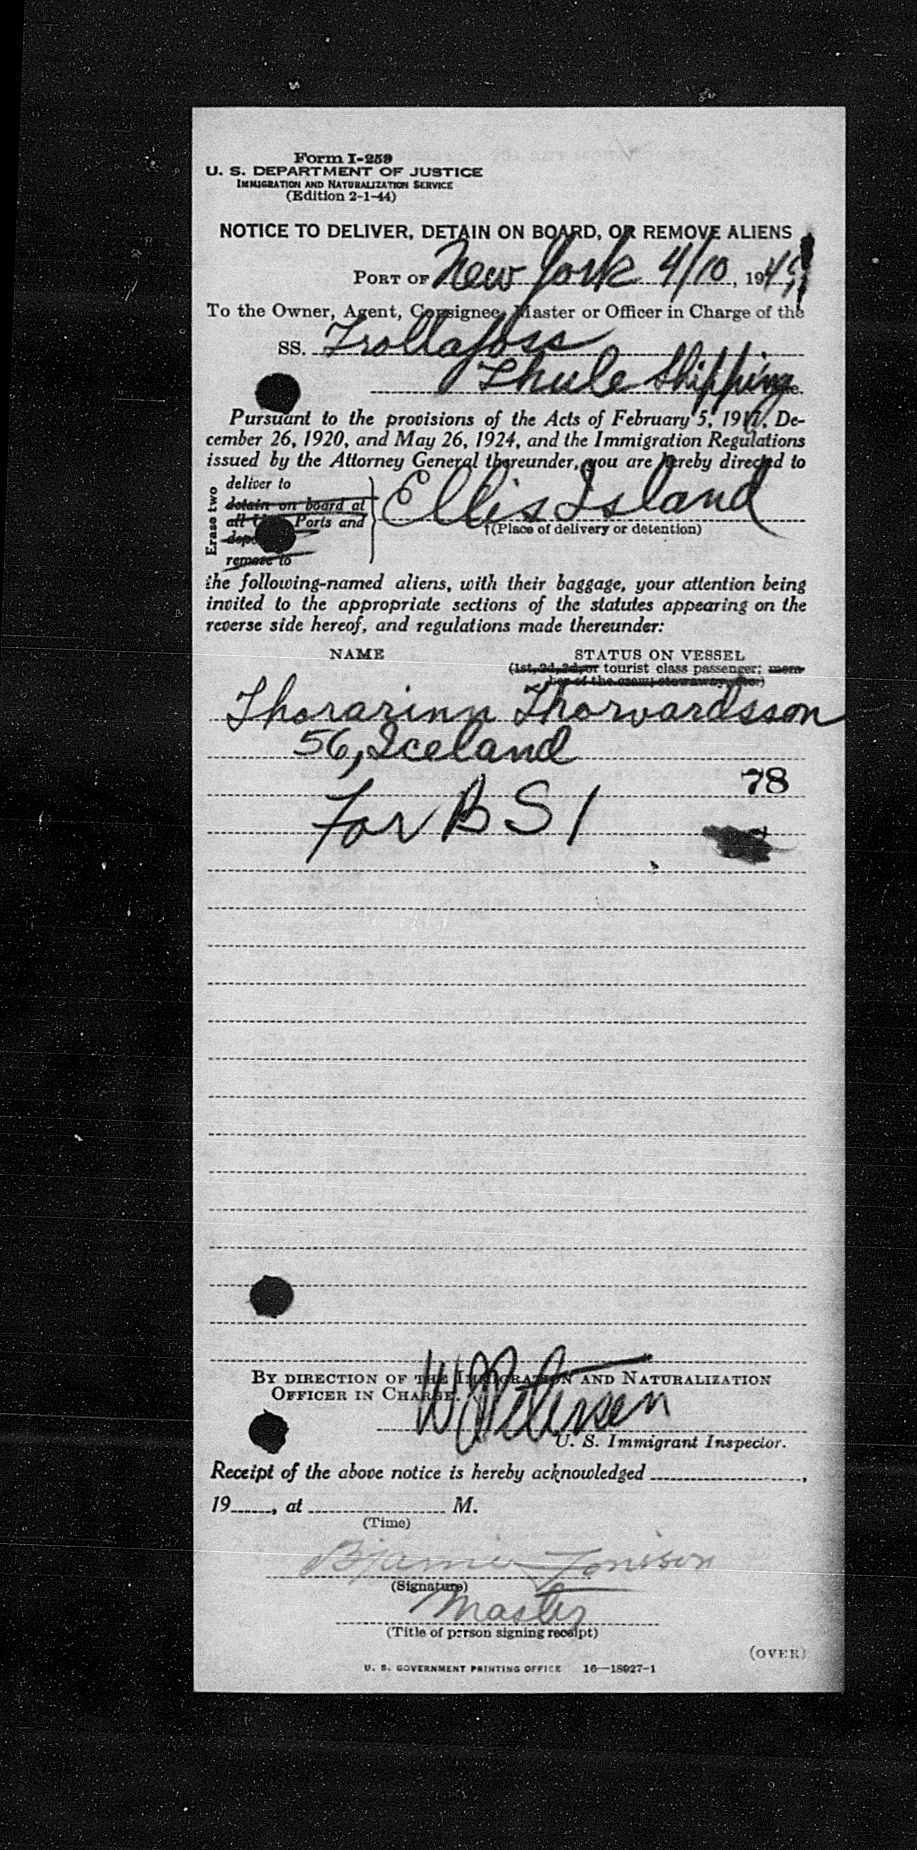 Form I-259
U. S. DEPARTMENT OF JUSTICE
IMMIGRATION AND NATURALIZATION SERVICE
(Edition 2-1-44)
NOTICE TO DELIVER, DETAIN ON BOARD, OR REMOVE ALIENS
PORT OF New York 4/10, 194
To the Owner, Agent, Consignee, Master or Officer in Charge of the
SS. Trollafoss
Thule Shipping
Pursuant to the provisions of the Acts of February 5, 1917, De-
cember 26, 1920, and May 26, 1924, and the Immigration Regulations
issued by the Attorney General thereunder, you are hereby directed to
Erase two
deliver to
detain on board at
all Ports and
remove to
Ellis Island
†(Place of delivery or detention)
the following-named aliens, with their baggage, your attention being
invited to the appropriate sections of the statutes appearing on the
reverse side hereof, and regulations made thereunder:
NAME STATUS ON VESSEL
(1st, 2d, 3d, or tourist class passenger; mem-
ber of the crew; stowaway, etc.)
Thorarinn Thorvardsson
56, Iceland
78
For B S I
BY DIRECTION OF THE IMMIGRATION AND NATURALIZATION
OFFICER IN CHARGE.
W Petersen
U. S. Immigrant Inspector.
Receipt of the above notice is hereby acknowledged ,
19 , at M.
(Time)
Bjarni Jonsson
(Signature)
Master
(Title of person signing receipt)
(OVER)
U. S. GOVERNMENT PRINTING OFFICE 16—18927-1